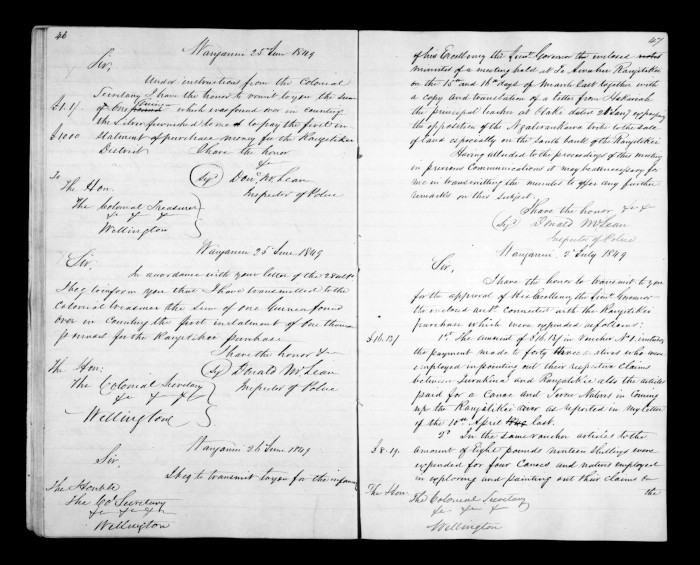 46
Wanganui 25 June 1849
Sir,
Under instructions from the Colonial
Secretary I have the honor to remit to you the sum
£1.1/ of One Guinea which was found over in counting
the silver furnished to me to pay the first in
£1000 stalment of purchase money for the Rangitikei
District. I have the honor
&c
To (Sgd) Don. McLean
The Hon. Inspector of Police
The Colonial Treasurer
&c &c &c
Wellington
Wanganui 25 June 1849
Sir,
In accordance with your letter of the 28 ult
I beg to inform you that I have transmitted to the
Colonial Treasurer the sum of one Guinea found
over in counting the first instalment of one thous
pounds for the Rangitikei purchase.
I have the honor &c
The Hon: (Sgd) Donald McLean
The Colonial Secretary Inspector of Police
&c &c &c
Wellington
Wanganui 26 June 1849
Sir,
I beg to transmit to you for the information
The Honble
The Col Secretary
&c &c &c
Wellington
47
of his Excellency the Lieut Governor the enclosed
minutes of a meeting held at Te Awahou Rangitikei
on the 15th and 16th days of March last together with
a copy and translation of a letter from Hakaraia
the principal teacher at Otaki dated 28 Jany
the opposition of the Ngatiraukawa tribe to the sale
of land especially on the South bank of the Rangitikei
Having alluded to the proceedings of this meeting
in previous Communications it may be unnecessary for
me in transmitting the minutes to offer any further
remarks on this subject.
I have the honor &c &c
(Sgd) Donald McLean
Inspector of Police
Wanganui 2 July 1849
Sir,
I have the honor to transmit to you
for the approval of His Excellency the Lieut Governor
the enclosed acct connected with the Rangitikei
purchase which were expended as follows:
£16.13/ 1st The amount of £16.13/ in Voucher No 1 includes
the payment made to forty three natives who were
employed in pointing out their respective claims
between Turakina and Rangitikei also the articles
paid for a Canoe and Seven Natives in Coming
up the Rangitikei river as reported in my letter
of the 10th April last.
2d In the same voucher articles to the
£8.19. amount of Eight pounds nineteen Shillings were
expended for four Canoes and natives employed
in exploring and pointing out their claims on
the
The Hon
The Colonial Secretary
&c &c &c
Wellington